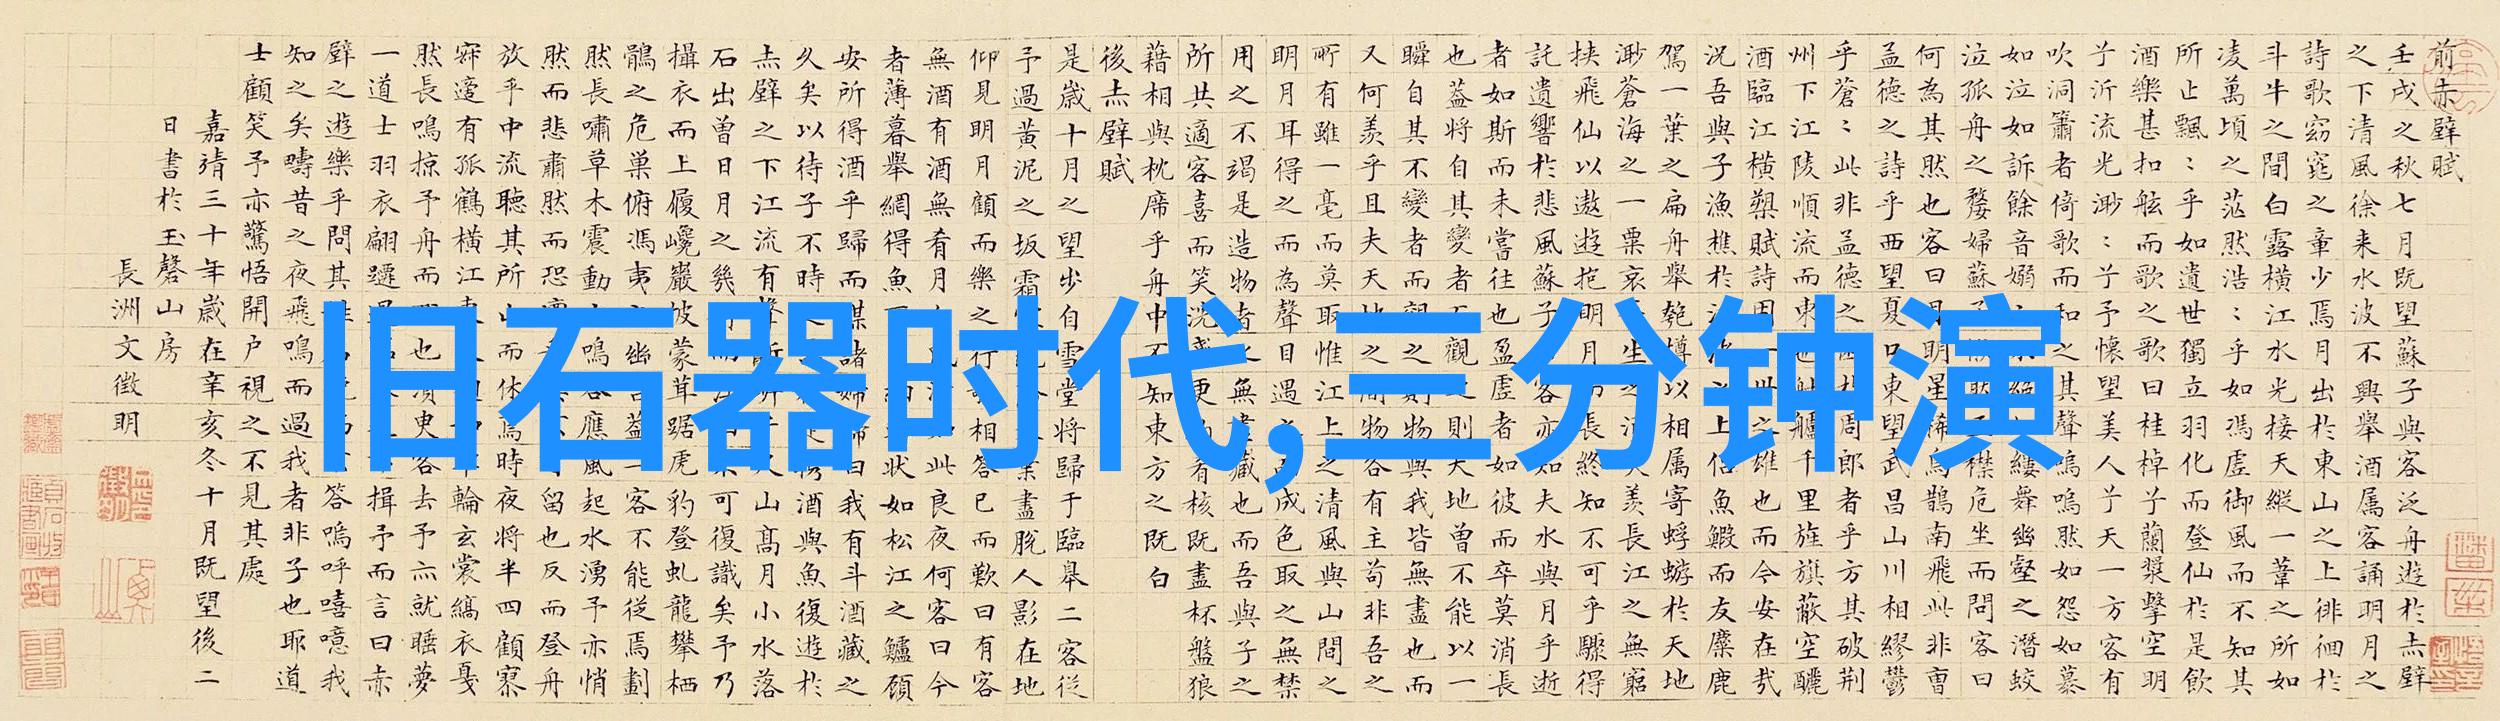 旧石器时代,三分钟演
前赤壁賦
壬戌之秋七月既望蘇子與客泛舟遊於赤壁
之下清風徐来水波不興舉酒属客誦明月之
詩歌窈窕之章少焉月出於東山之上徘徊於
斗牛之間白露横江水光接天縱一葦之所如
凌萬頃之茫然浩〻乎如馮虚御風而不知其
所止飄〻乎如遺世獨立羽化而登仙於是飲
酒樂甚扣舷而歌之歌曰桂棹兮蘭槳擊空明
兮泝流光渺〻兮予懷望美人兮天一方客有
吹洞簫者倚歌而和之其聲嗚嗚然如怨如慕
如泣如訴餘音嫋縷舞幽壑之潛蛟
泣孤舟之嫠婦蘇襟危坐而問客曰
何為其然也客曰月明星稀烏鵲南飛此非曹
孟德之詩乎西望夏口東望武昌山川相繆鬱
乎蒼〻此非孟德之周郎者乎方其破荆
州下江陵順流而東艫千里旌旗蔽空釃
酒臨江橫槊賦詩固一世之雄也而今安在哉
况吾與子漁樵於上侣魚鰕而友麋鹿
駕一葉之扁舟舉匏樽以相属寄蜉蝣於天地
渺蒼海之一粟哀羨長江之無窮
挟飛仙以遨遊抱明月長終知不可乎驟得
託遺響於悲風蘇子客亦知夫水與月乎逝
者如斯而未嘗往也盈虚者如彼而卒莫消長
也蓋將自其變者觀則天地曾不能以一
瞬自其不變者而觀之則物與我皆無盡也而
又何羨乎且夫天地之間物各有主苟非吾之
所有雖一毫而莫取惟江上之清風與山間之
明月耳得之而為聲目遇之成色取之無禁
用之不竭是造物者之無盡藏也而吾與子之
所共適客喜而笑洗盞更有核既盡杯盤狼
藉相與枕席乎舟中不知東方之既白
後赤壁賦
是歲十月之望步自雪堂將歸于臨皋二客從
予過黄泥之坂霜葉盡脱人影在地
仰見明月顧而樂之行相答已而歎曰有客
無酒有酒無肴月如此良夜何客曰今
者薄暮舉網得魚狀如松江之鱸顧
安所得酒乎歸而謀諸婦婦曰我有斗酒藏之
久矣以待子不時酒與魚復遊於
赤壁之下江流有聲斷山高月小水落
石出曾日月之幾可復識矣予乃
攝衣而上履巉巖披蒙茸踞虎豹登虬龍攀栖
鶻之危巢俯馮夷幽蓋二客不能從焉劃
然長嘯草木震動鳴應風起水湧予亦悄
然而悲肅然而恐留也反而登舟
放乎中流聽其所止而休焉時夜將半四顧寥
寂適有孤鶴橫江輪玄裳縞衣戛
然長鳴掠予舟而也須臾客去予亦就睡夢
一道士羽衣翩躚揖予而言曰赤
壁之遊樂乎問其答嗚呼噫嘻我
知之矣疇昔之夜飛鳴而過我者非子也耶道
士顧笑予亦驚悟開户視之不見其處
嘉靖三十年歲在辛亥冬十月既望後二
日書於玉磬山房
長洲文徵明